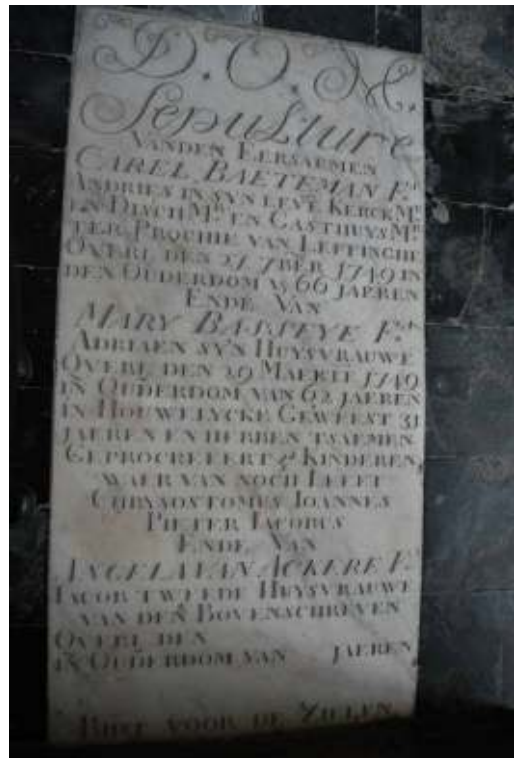 D. O. M.
Sepulture
VANDEN EERSAEMEN
CAREL BAETEMAN Fˢ
ANDRIES IN SYN LEVE KERCK Mᴿ
EN DISCH Mᴿ EN GASTHUYS Mᴿ
TER PROCHIE VAN LEFFINGHE
OVERL DEN 27 7BER 1749 IN
DEN OUDERDOM 66 JAEREN
ENDE VAN
MARY BASSEYE
ADRIAEN SYN HUYSVRAUWE
OVERL DEN 29 MAERTE 1749
IN OUDERDOM VAN 62 JAEREN
IN HOUWELYCKE GEWEEST 31
JAEREN EN HEBBEN TSAEMEN
GEPROCREEERT KINDEREN
WAER VAN NOCH LEEFT
CHRYSOSTOMUS IOANNES
PIETER IACOBUS
ENDE VAN
ANGELA VAN ACKERE Fˢ
IACOB TWEEDE HUYSVRAUWE
VAN DEN BOVENSCHREVEN
OVERL DEN
IN OUDERDOM VAN JAEREN
BIDT VOOR DE ZIELEN